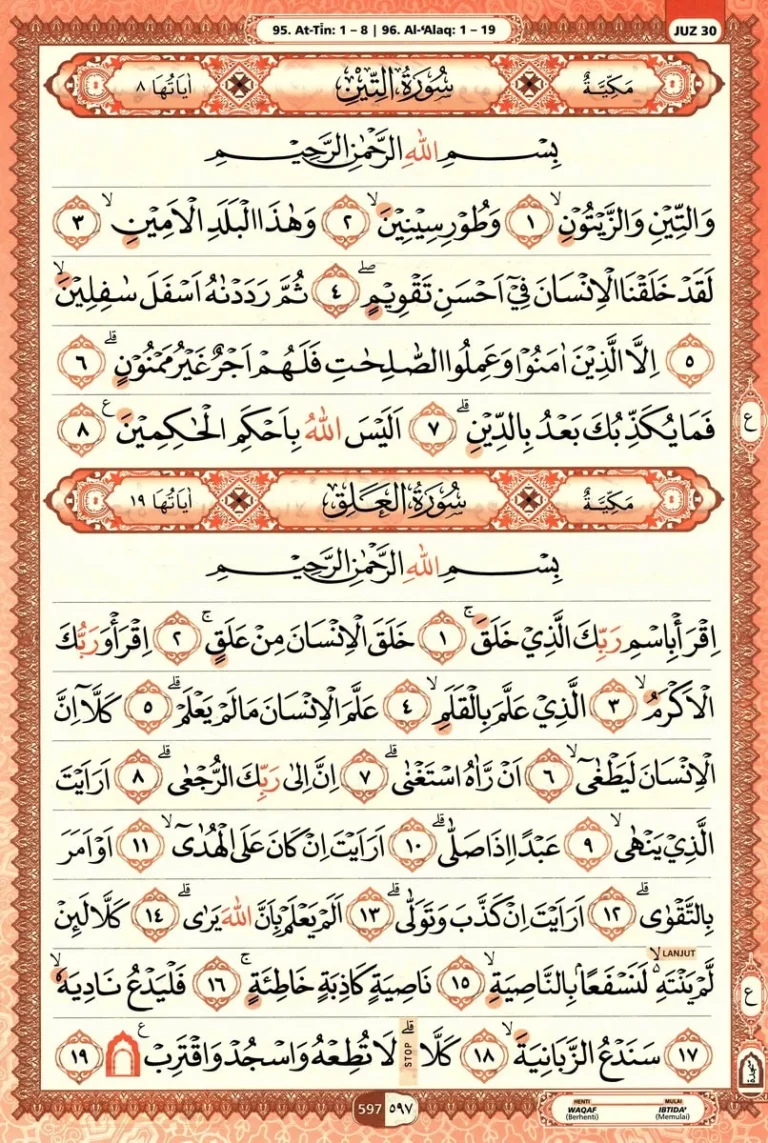 95. At-Tīn: 1 – 8 | 96. Al-‘Alaq: 1 – 19
JUZ 30
مَكِّيَّةٌ سُوْرَةُ التِّيْنِ اٰيَاتُهَا ٨
بِسْمِ اللّٰهِ الرَّحْمٰنِ الرَّحِيْمِ
وَالتِّيْنِ وَالزَّيْتُوْنِۙ ١ وَطُوْرِ سِيْنِيْنَۙ ٢ وَهٰذَا الْبَلَدِ الْاَمِيْنِۙ ٣
لَقَدْ خَلَقْنَا الْاِنْسَانَ فِيْٓ اَحْسَنِ تَقْوِيْمٍۖ ٤ ثُمَّ رَدَدْنٰهُ اَسْفَلَ سٰفِلِيْنَۙ
٥ اِلَّا الَّذِيْنَ اٰمَنُوْا وَعَمِلُوا الصّٰلِحٰتِ فَلَهُمْ اَجْرٌ غَيْرُ مَمْنُوْنٍۗ ٦
فَمَا يُكَذِّبُكَ بَعْدُ بِالدِّيْنِۗ ٧ اَلَيْسَ اللّٰهُ بِاَحْكَمِ الْحٰكِمِيْنَ ࣖ ٨
ع
مَكِّيَّةٌ سُوْرَةُ الْعَلَقِ اٰيَاتُهَا ١٩
بِسْمِ اللّٰهِ الرَّحْمٰنِ الرَّحِيْمِ
اِقْرَأْ بِاسْمِ رَبِّكَ الَّذِيْ خَلَقَۚ ١ خَلَقَ الْاِنْسَانَ مِنْ عَلَقٍۚ ٢ اِقْرَأْ وَرَبُّكَ
الْاَكْرَمُۙ ٣ الَّذِيْ عَلَّمَ بِالْقَلَمِۙ ٤ عَلَّمَ الْاِنْسَانَ مَا لَمْ يَعْلَمْۗ ٥ كَلَّآ اِنَّ
الْاِنْسَانَ لَيَطْغٰىٓۙ ٦ اَنْ رَّاٰهُ اسْتَغْنٰىۗ ٧ اِنَّ اِلٰى رَبِّكَ الرُّجْعٰىۗ ٨ اَرَاَيْتَ
الَّذِيْ يَنْهٰىۙ ٩ عَبْدًا اِذَا صَلّٰىۗ ١٠ اَرَاَيْتَ اِنْ كَانَ عَلَى الْهُدٰىٓۙ ١١ اَوْ اَمَرَ
بِالتَّقْوٰىۗ ١٢ اَرَاَيْتَ اِنْ كَذَّبَ وَتَوَلّٰىۗ ١٣ اَلَمْ يَعْلَمْ بِاَنَّ اللّٰهَ يَرٰىۗ ١٤ كَلَّا لَىِٕنْ
LANJUT
لَّمْ يَنْتَهِ ەۙ لَنَسْفَعًاۢ بِالنَّاصِيَةِۙ ١٥ نَاصِيَةٍ كَاذِبَةٍ خَاطِئَةٍۚ ١٦ فَلْيَدْعُ نَادِيَهٗۙ
ع
١٧ سَنَدْعُ الزَّبَانِيَةَۙ ١٨ كَلَّاۗ STOP لَا تُطِعْهُ وَاسْجُدْ وَاقْتَرِبْ ۩ ࣖ ١٩
سجدة
597 ٥٩٧
HENTI WAQAF (Berhenti)
MULAI IBTIDA' (Memulai)